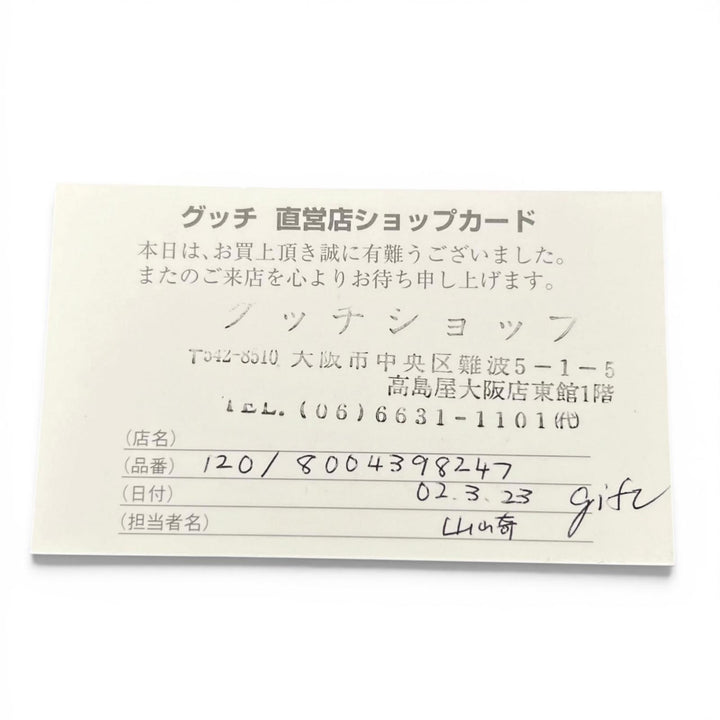 グッチ 直営店ショップカード
本日は、お買上頂き誠に有難うございました。
またのご来店を心よりお待ち申し上げます。
グッチショップ
〒542-8510 大阪市中央区難波5-1-5
高島屋大阪店東館1階
TEL. (06)6631-1101㈹
(店名)
(品番) 120/8004398247
(日付) 02.3.23 gift
(担当者名) 山崎